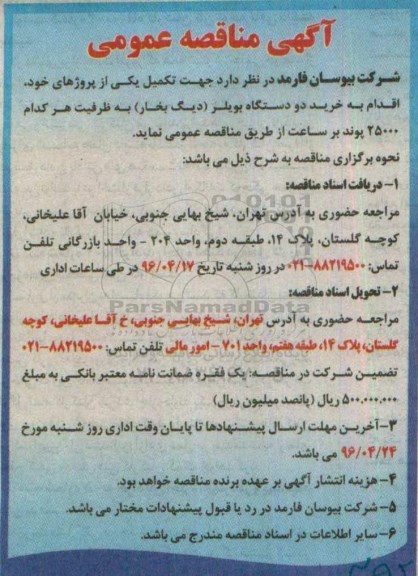 آگهی مناقصه عمومی
شرکت بیوسان فارمد در نظر دارد جهت تکمیل یکی از پروژهای خود،
اقدام به خرید دو دستگاه بویلر (دیگ بخار) به ظرفیت هر کدام
۲۵۰۰۰ پوند بر ساعت از طریق مناقصه عمومی نماید.
نحوه برگزاری مناقصه به شرح ذیل می باشد:
۱- دریافت اسناد مناقصه:
مراجعه حضوری به آدرس تهران، شیخ بهایی جنوبی، خیابان آقا علیخانی،
کوچه گلستان، پلاک ۱۴، طبقه دوم، واحد ۲۰۴ - واحد بازرگانی تلفن
تماس: ۸۸۲۱۹۵۰۰-۰۲۱ در روز شنبه تاریخ ۹۶/۰۴/۱۷ در طی ساعات اداری
۲- تحویل اسناد مناقصه:
ParsNamadData
مراجعه حضوری به آدرس تهران، شیخ بهایی جنوبی، خ آقا علیخانی، کوچه
گلستان، پلاک ۱۴، طبقه هفتم، واحد ۷۰۱ - امور مالی تلفن تماس: ۸۸۲۱۹۵۰۰-۰۲۱
تضمین شرکت در مناقصه: یک فقره ضمانت نامه معتبر بانکی به مبلغ
۵۰۰.۰۰۰.۰۰۰ ریال (پانصد میلیون ریال)
۳- آخرین مهلت ارسال پیشنهادها تا پایان وقت اداری روز شنبه مورخ
۹۶/۰۴/۲۴ می باشد.
۴- هزینه انتشار آگهی بر عهده برنده مناقصه خواهد بود.
۵- شرکت بیوسان فارمد در رد یا قبول پیشنهادات مختار می باشد.
۶- سایر اطلاعات در اسناد مناقصه مندرج می باشد.